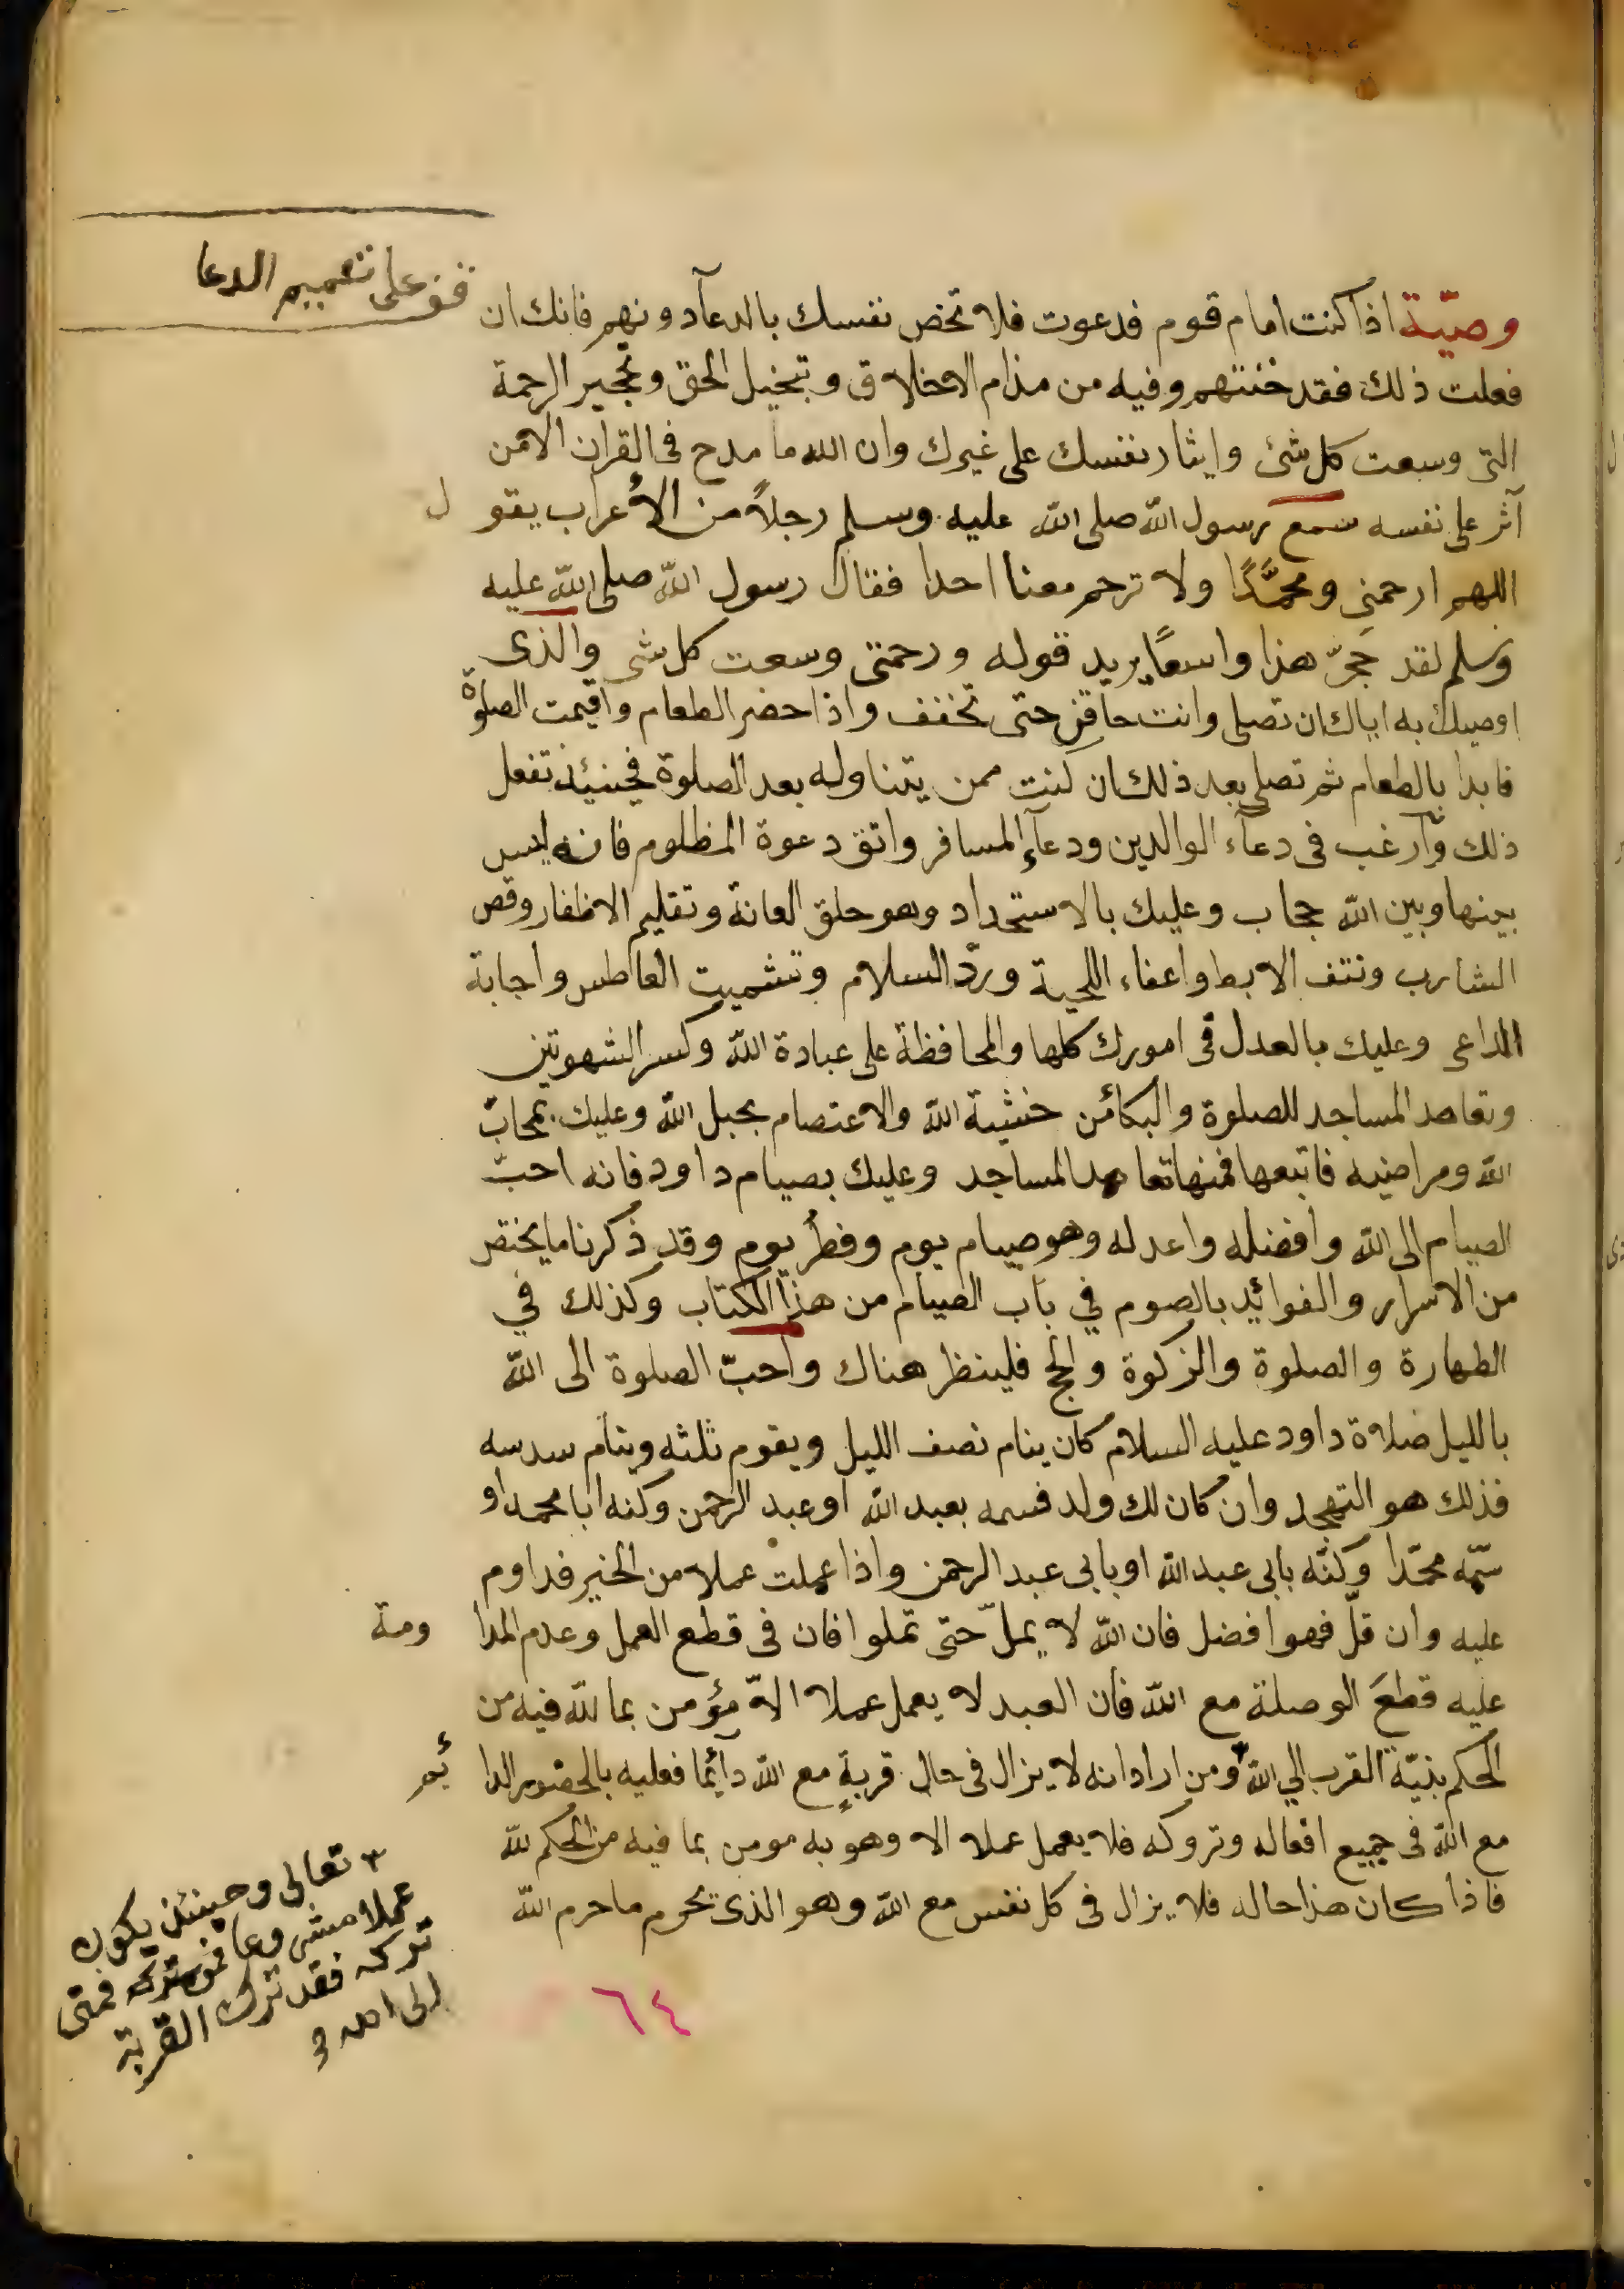 قف على تعميم الدعا
وصيّة اذا كنت امام قوم فدعوت فلا تخص نفسك بالدعآء دونهم فانك ان
فعلت ذلك فقد خنتهم وفيه من مذام الاخلاق وتبخيل الحق وتحجير الرحمة
التى وسعت كل شئ وايثار نفسك على غيرك وان الله ما مدح فى القران الا من
آثر على نفسه سمع رسول الله صلى الله عليه وسلم رجلاً من الأعراب يقول
اللهم ارحمنى ومحمّدًا ولا ترحم معنا احدا فقال رسول الله صلى الله عليه
وسلم لقد حَجرّ هذا واسعًا يريد قوله ورحمتى وسعت كل شى والذى
اوصيك به اياك ان تصلى وانت حاقن حتى تخفف واذا حضر الطعام واقيمت الصلوة
فابدا بالطعام ثم تصلى بعد ذلك ان كنت ممن يتناوله بعد الصلوة فحينئذ تفعل
ذلك وآرغب فى دعآء الوالدين ودعآء المسافر واتق دعوة المظلوم فانه ليس
بينها وبين الله حجاب وعليك بالاستحداد وهو حلق العانة وتقليم الاظفار وقص
الشارب ونتف الابط واعفاء اللحية وردّ السلام وتشميت العاطس واجابة
الداعى وعليك بالعدل فى امورك كلها والمحافظة على عبادة الله وكسر الشهوتين
وتعاهد المساجد للصلوة والبكآء من خشية الله والاعتصام بحبل الله وعليك بمحابّ
الله ومراضيه فاتبعها فمنها تعاهد المساجد وعليك بصيام داود فانه احبّ
الصيام الى الله وافضله واعدله وهو صيام يوم وفطر يوم وقد ذكرنا ما يختص
من الاسرار والفوائد بالصوم في باب الصيام من هذا الكتاب وكذلك في
الطهارة والصلوة والزكوة والحج فلينظر هناك واحبّ الصلوة الى الله
بالليل صلاة داود عليه السلام كان ينام نصف الليل ويقوم ثلثه وينام سدسه
فذلك هو التهجد وان كان لك ولد فسمه بعبد الله او عبد الرحمن وكنه ابا محمد او
سمّه محمّدا وكنّه بابى عبد الله او بابى عبد الرحمن واذا عملت عملا من الخير فداوم
عليه وان قلّ فهو افضل فان الله لا يملّ حتى تملوا فان فى قطع العمل وعدم المداومة
عليه قطعَ الوصلة مع الله فان العبد لا يعمل عملا الا مؤمن بما لله فيه من
الحكم بنيّة القرب الي الله ومن اراد انه لا يزال فى حال قربةٍ مع الله دآئما فعليه بالحضور الدائم
مع الله فى جميع افعاله وتروكه فلا يعمل عملا الا وهو به مومن بما فيه من الحكم لله
فاذا كان هذا حاله فلا يزال فى كل نفس مع الله وهو الذى يحرم ما حرم الله
٣ تعالى وحينئذ يكون
عملا مشروعا فمتى
تركه فقد ترك القربة
الى الله
٦٤